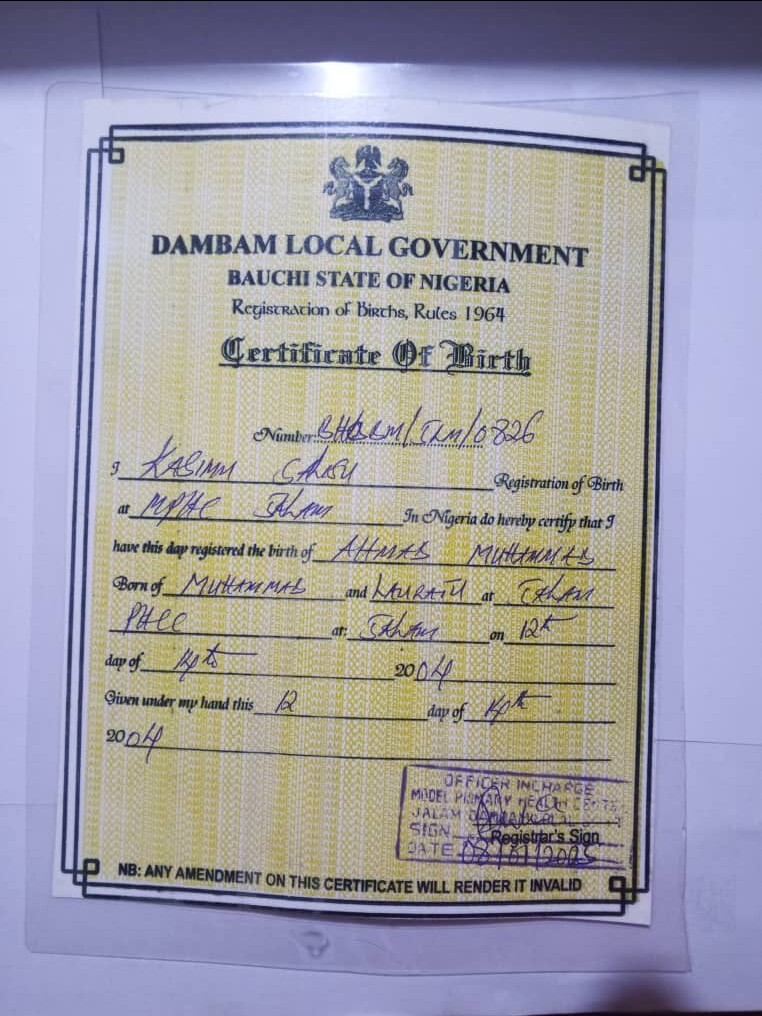 DAMBAM LOCAL GOVERNMENT
BAUCHI STATE OF NIGERIA
Registration of Births, Rules 1964
Certificate Of Birth
Number: /0826
I KASIMU Registration of Birth
at MPHC JALAM In Nigeria do hereby certify that I
have this day registered the birth of AHMAD MUHAMMAD
Born of MUHAMMAD and LAURATU at JALAM
PHCC at: JALAM on 12th
day of 2004
Given under my hand this 12 day of
2004
OFFICER INCHARGE
MODEL PRIMARY HEALTH
JALAM
SIGN Registrar's Sign
DATE
NB: ANY AMENDMENT ON THIS CERTIFICATE WILL RENDER IT INVALID